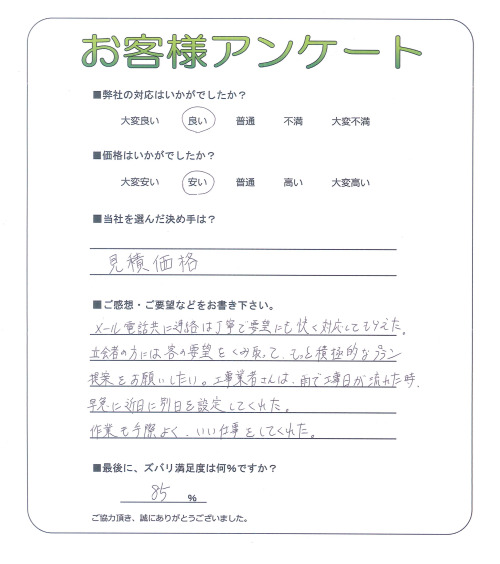 お客様アンケート
■弊社の対応はいかがでしたか？
大変良い 良い 普通 不満 大変不満
■価格はいかがでしたか？
大変安い 安い 普通 高い 大変高い
■当社を選んだ決め手は？
見積価格
■ご感想・ご要望などをお書き下さい。
メール電話共に連絡は丁寧で要望にも快く対応してもらえた。
立会者の方には客の要望をくみ取って、もっと積極的なプラン
提案をお願いしたい。工事業者さんは、雨で工事日が流れた時、
早急に近日に別日を設定してくれた。
作業も手際よく、いい仕事をしてくれた。
■最後に、ズバリ満足度は何%ですか？
85 %
ご協力頂き、誠にありがとうございました。